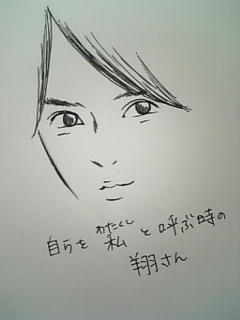 わたくし
自らを 私 と呼ぶ時の
翔さん